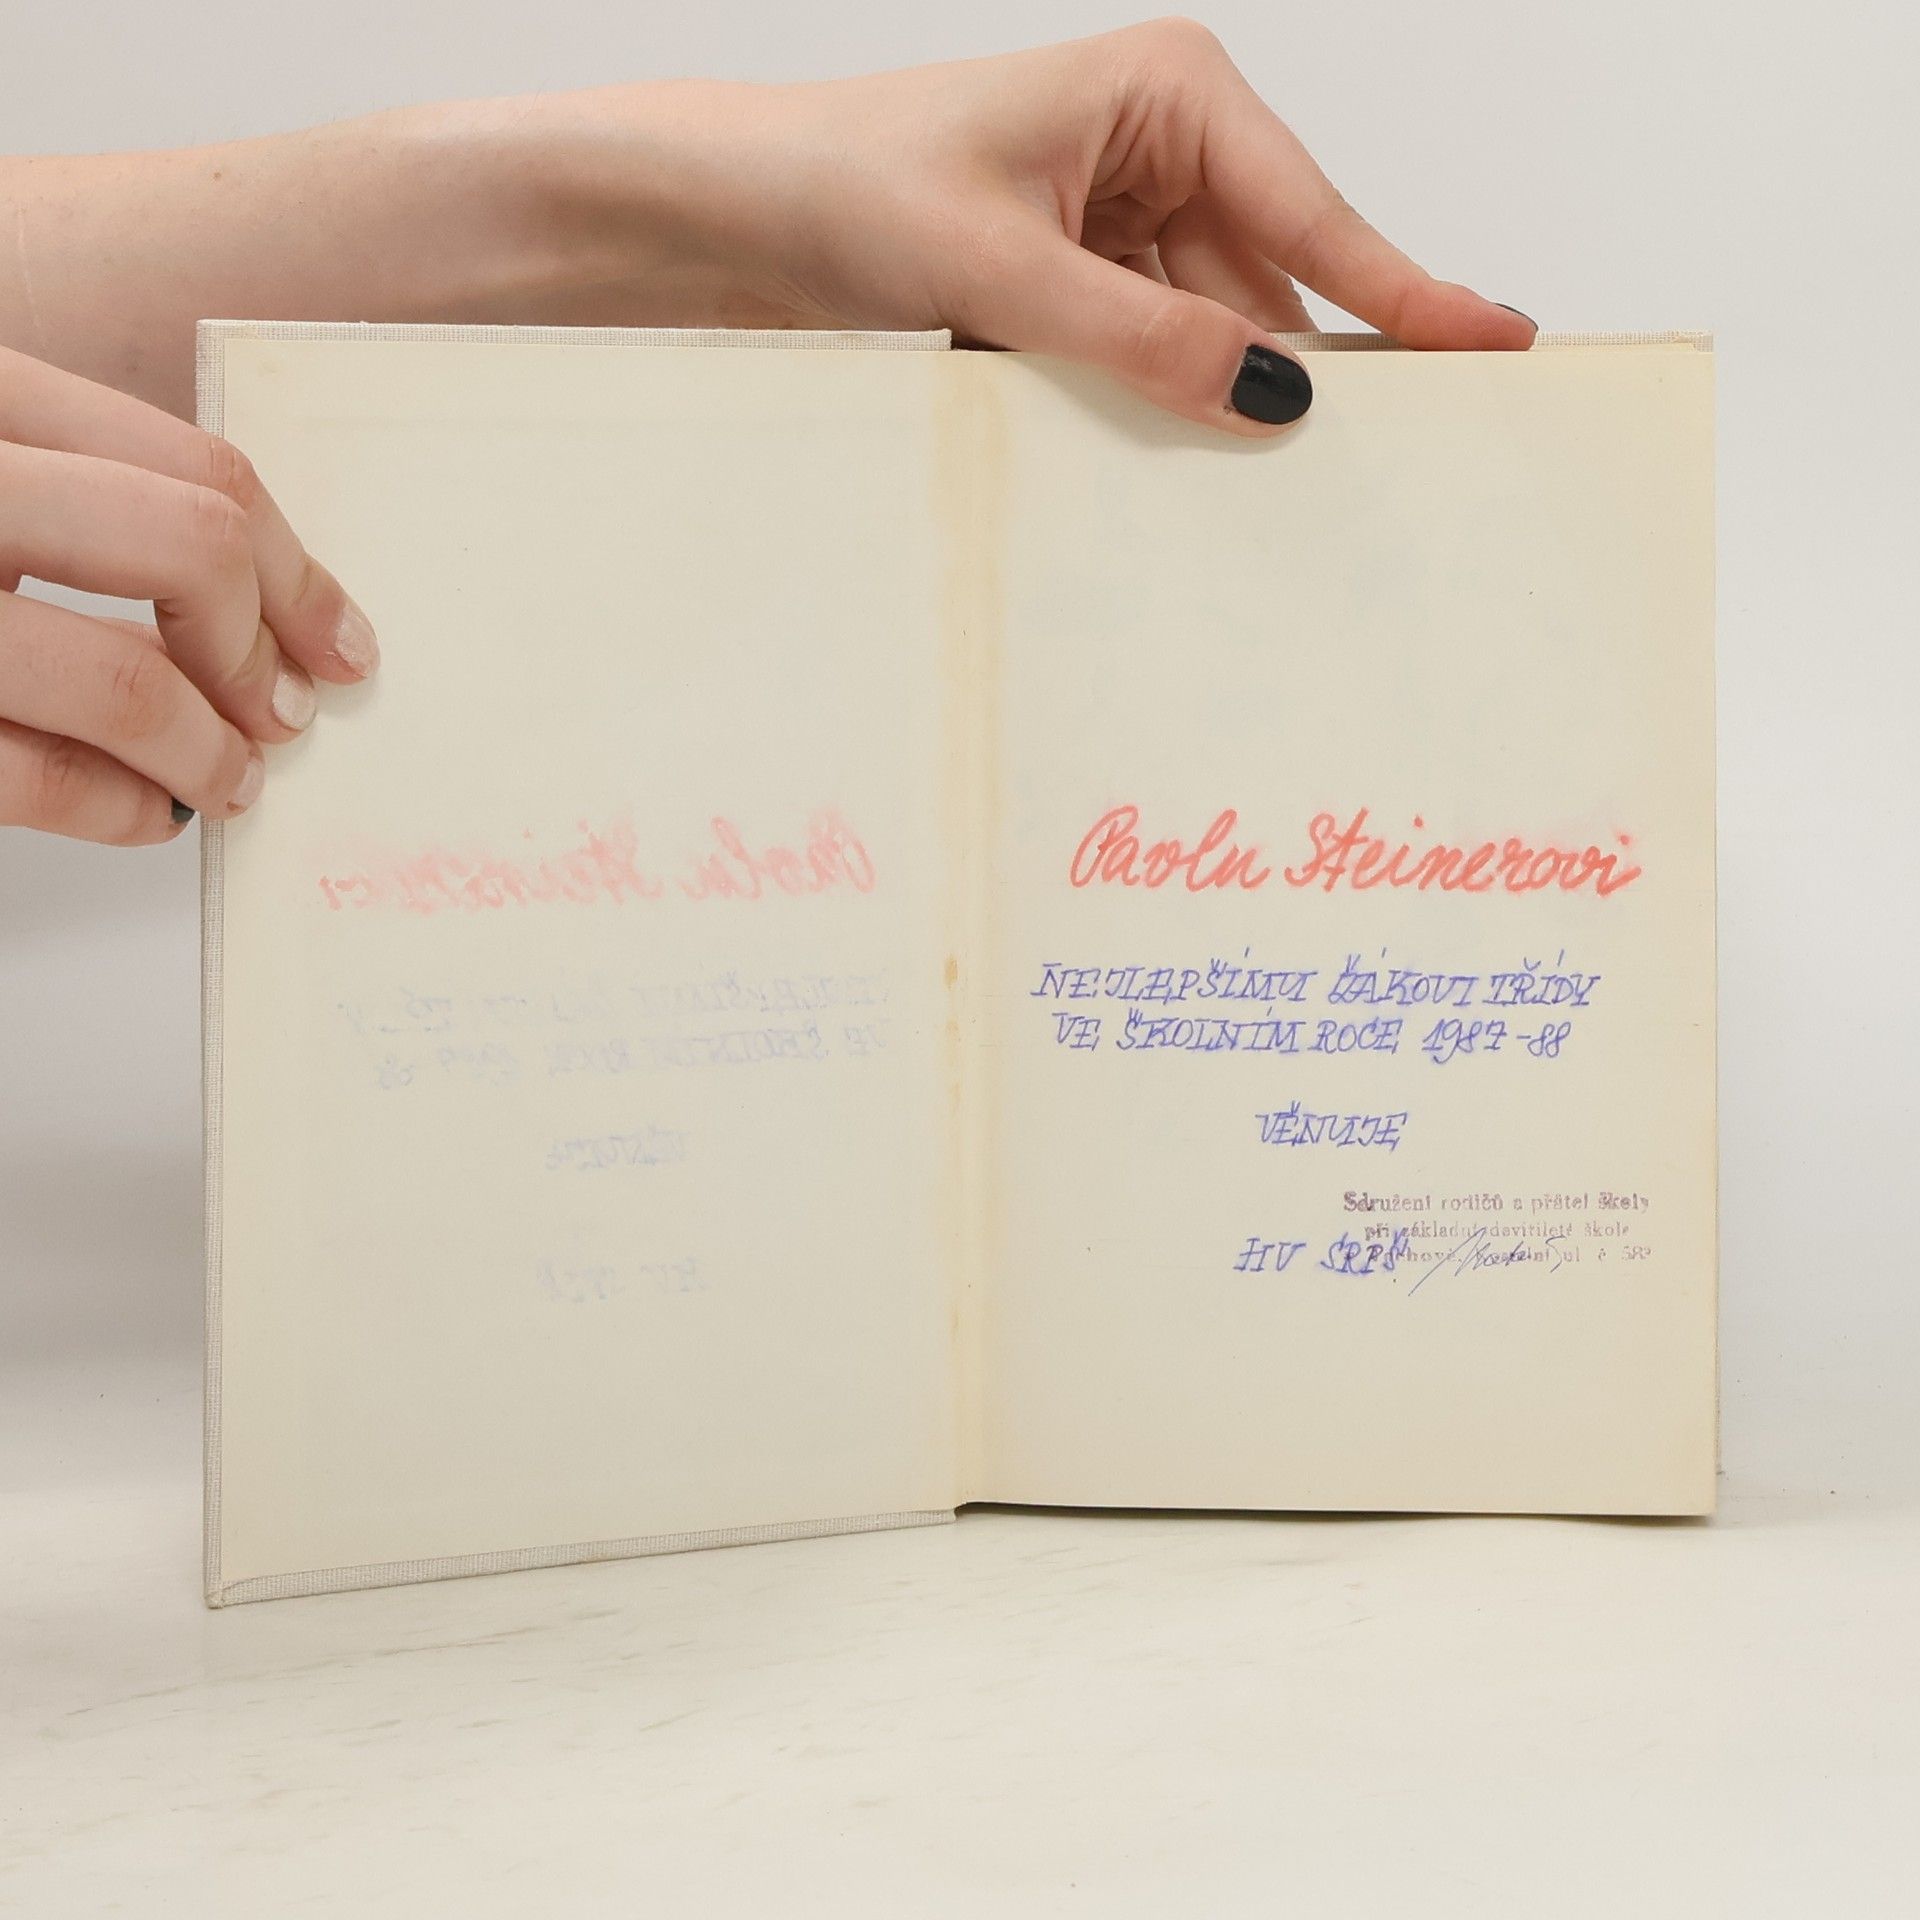 Pavlu Steinerovi
NEJLEPŠÍMU ŽÁKOVI TŘÍDY
VE ŠKOLNÍM ROCE 1987-88
VĚNUJE
Sdružení rodičů a přátel školy
při základní devítileté škole
HV SRPŠ